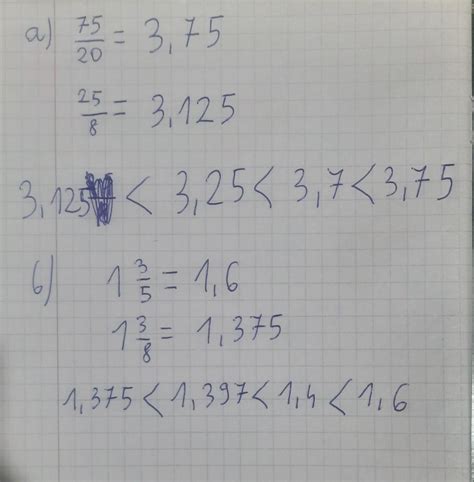 а) 75/20 = 3,75
25/8 = 3,125
3,125 < 3,25 < 3,7 < 3,75
б) 1 3/5 = 1,6
1 3/8 = 1,375
1,375 < 1,397 < 1,4 < 1,6